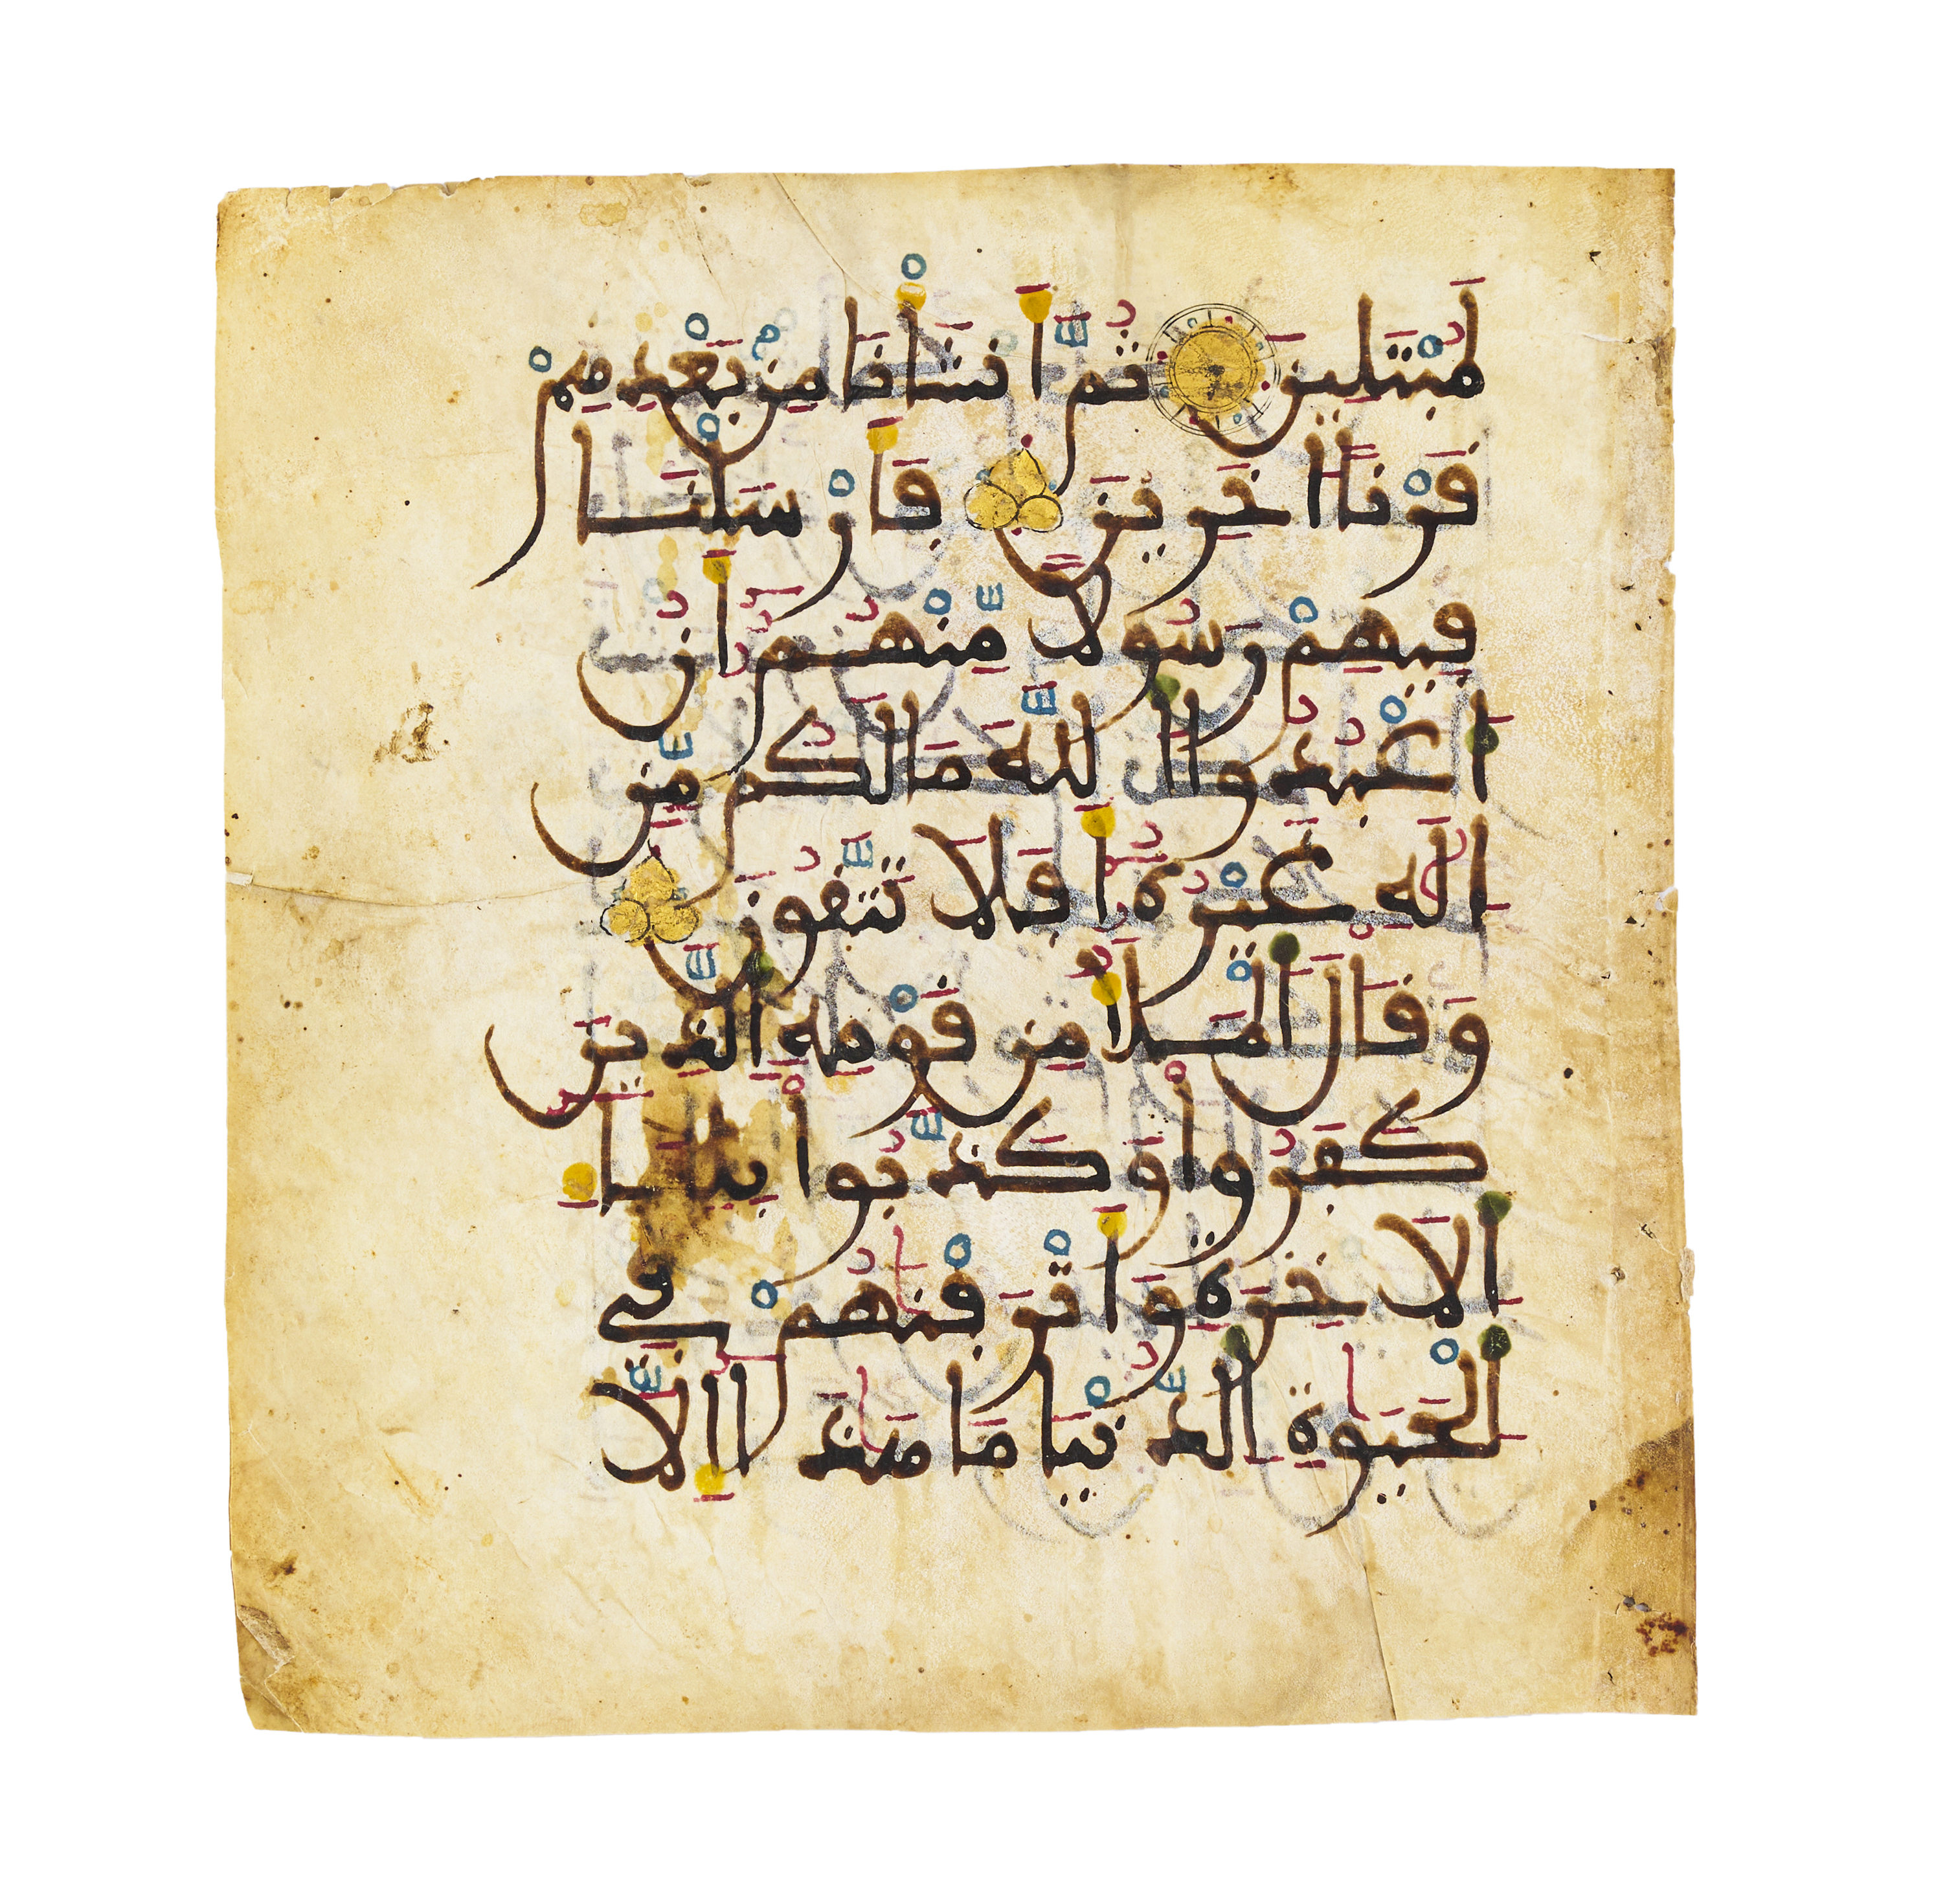 لَمُبْتَلِينَ ثُمَّ أَنشَأْنَا مِنۢ بَعْدِهِمْ
قَرْنًا اخَرِينَ فَأَرْسَلْنَا
فِيهِمْ رَسُولًا مِّنْهُمُۥ أَنُ
اعْبُدُوا اللَّهَ مَا لَكُم مِّنِ
اِلَٰهٍ غَيْرُهُۥ أَفَلَا تَتَّقُونَ
وَقَالَ الْمَلَأُ مِن قَوْمِهِ الَّذِينَ
كَفَرُوا وَكَذَّبُوا بِلِقَاءِ
الَاخِرَةِ وَأَتْرَفْنَٰهُمْ فِي
الْحَيَوٰةِ الدُّنْيَا مَا هَٰذَا إِلَّا